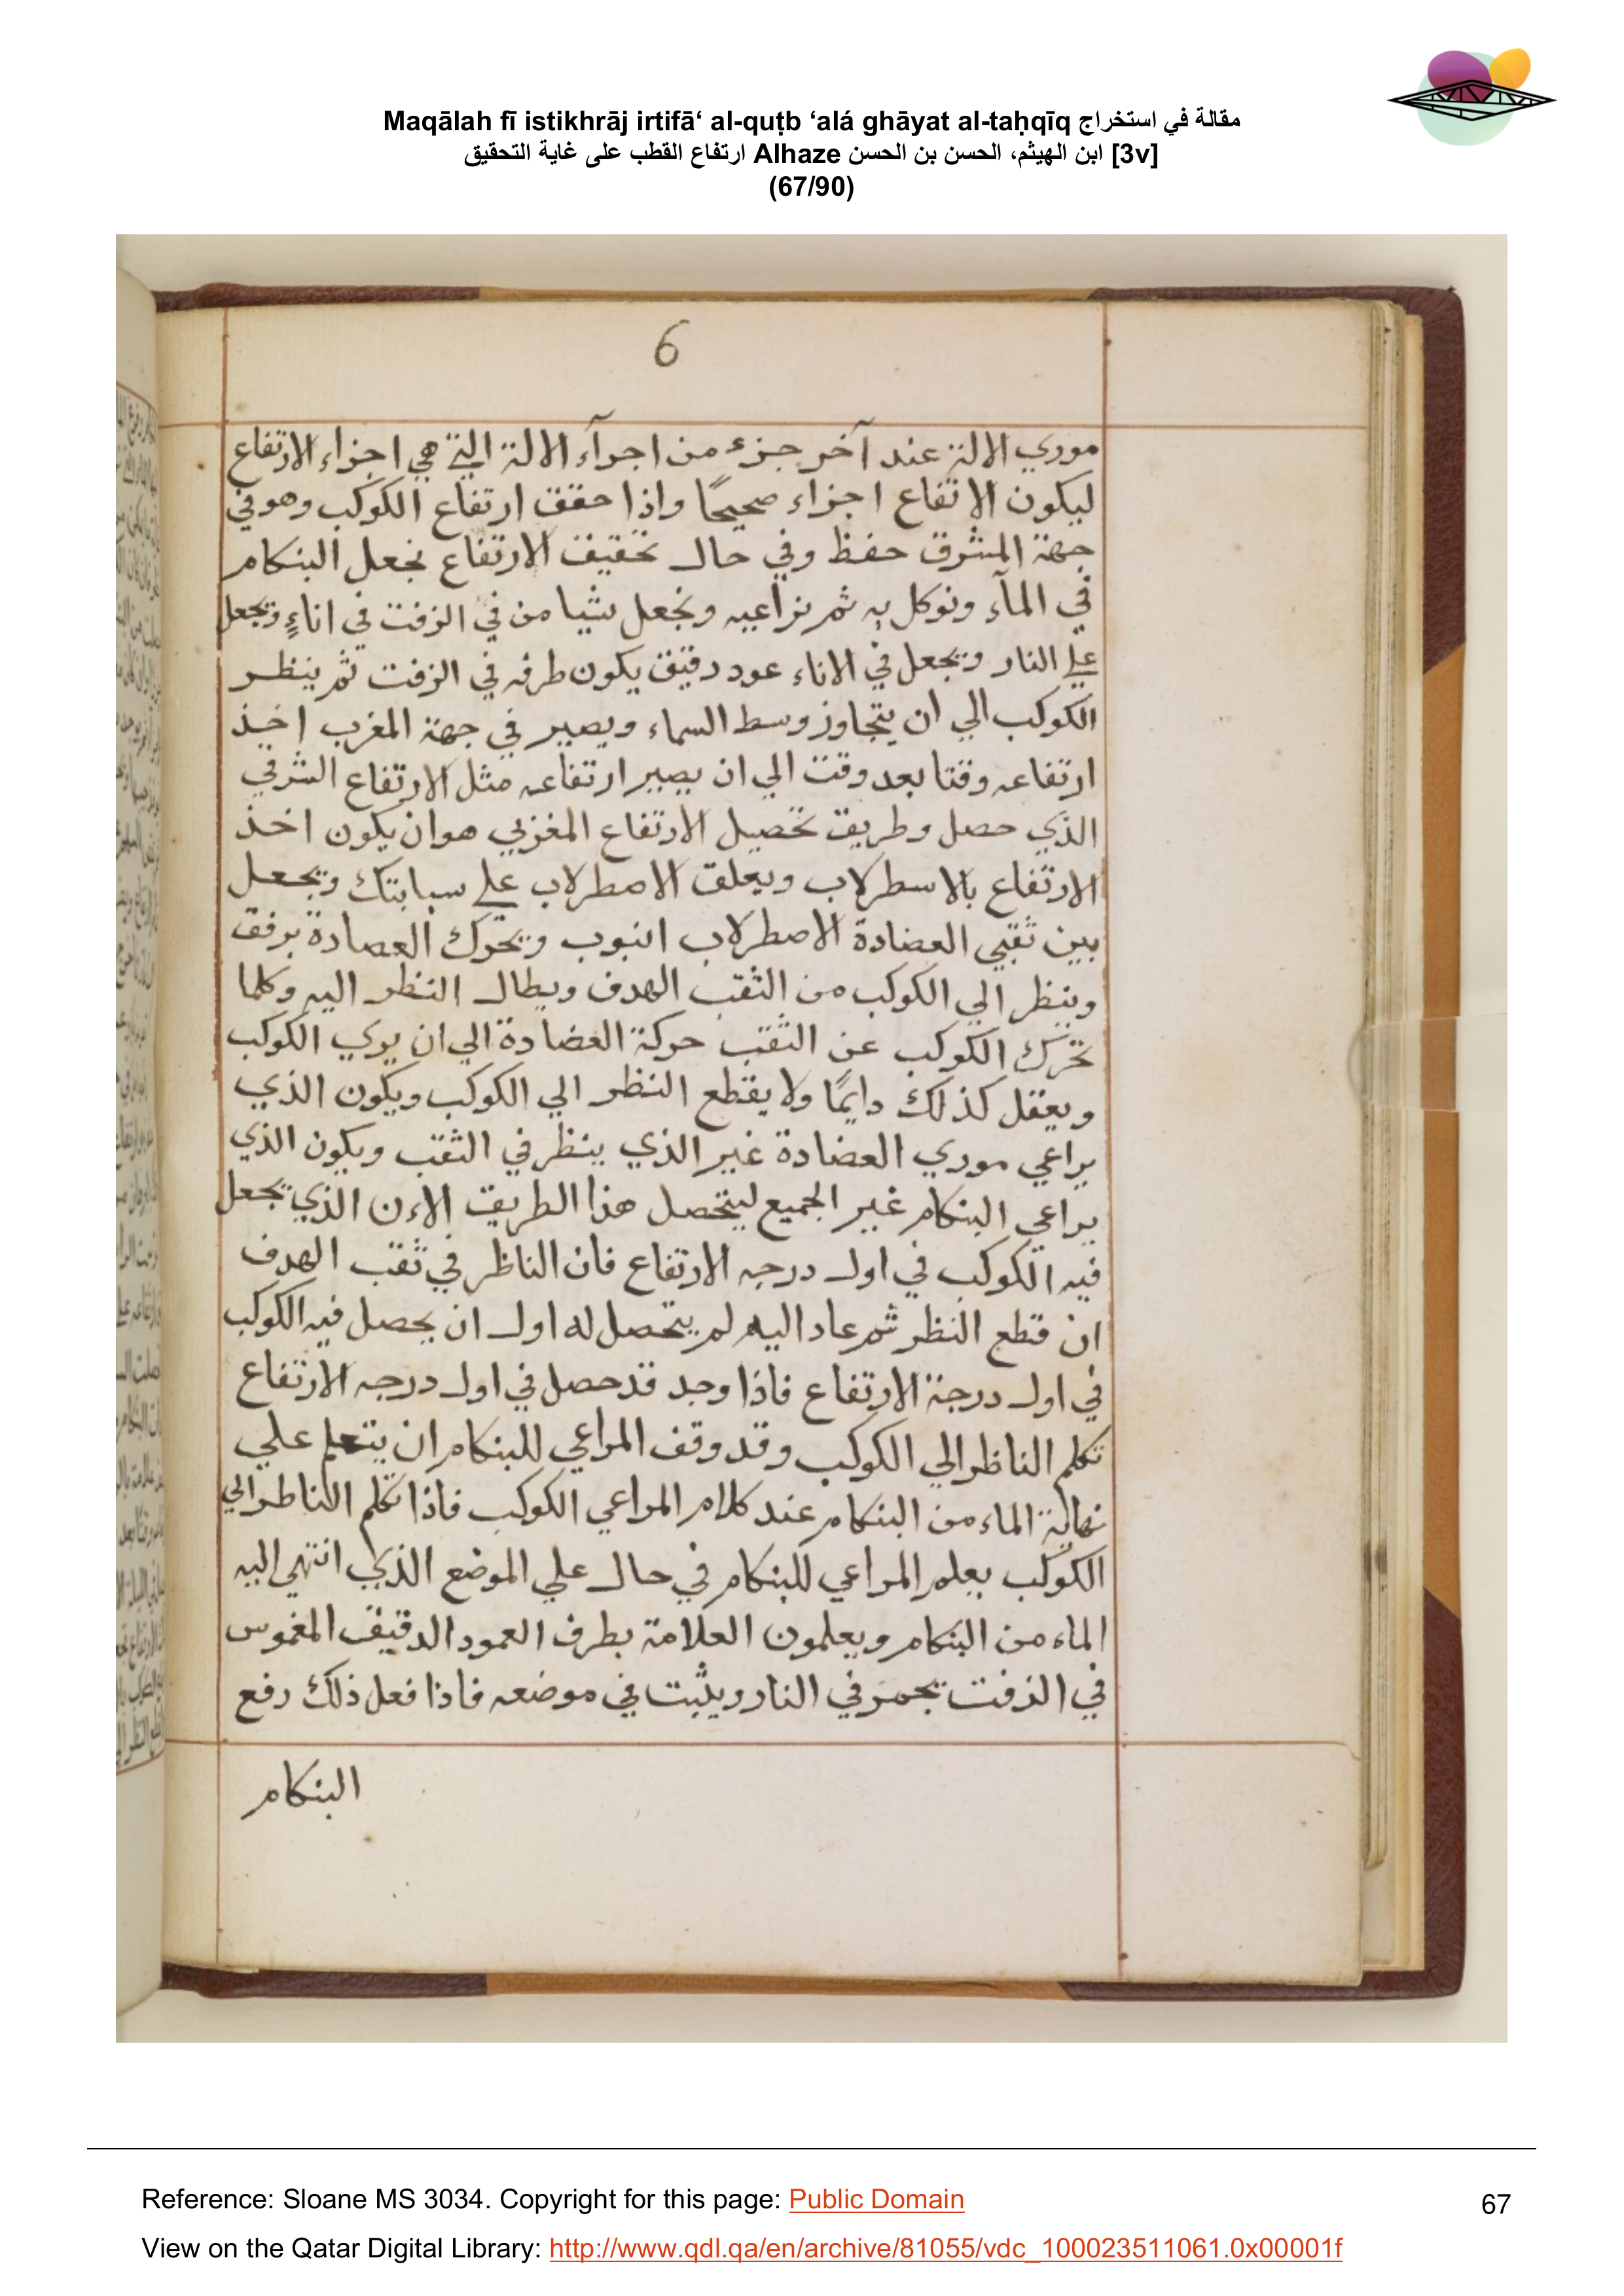 Maqālah fī istikhrāj irtifā‘ al-quṭb ‘alá ghāyat al-taḥqīq مقالة في استخراج
ارتفاع القطب على غاية التحقيق Alhaze ابن الهيثم، الحسن بن الحسن [3v]
(67/90)
6
موري الالة عند آخر جزء من اجرآء الالة التي هي اجزاء الارتفاع
ليكون الاتفاع اجزاء صحيحًا واذا حقق ارتفاع الكوكب وهو في
جهة المشرق حفظ وفي حال تحقيق الارتفاع نجعل البنكام
في المآء ونوكل به ثم نراعيه ونجعل شيا من في الزفت في اناءٍ ويجعل
علي النار ويجعل في الاناء عود دقيق يكون طرفه في الزفت ثم ينظر
الكوكب الي ان يتجاوز وسط السماء ويصير في جهة المغرب اخذ
ارتفاعه وقتا بعد وقت الي ان يصير ارتفاعه مثل الارتفاع الشرقي
الذي حصل وطريق تحصيل الارتفاع المغزبي هو ان يكون اخذ
الارتفاع بالاسطرلاب ويعلق الاصطرلاب علي سبابتك ويجعل
بين ثقبي العضادة الاصطرلاب انبوب ويحرك العصادة برفق
وينظر الي الكوكب من الثقب الهدف ويطال النظر اليه وكلما
تحرك الكوكب عن الثقب حركة العضادة الي ان يري الكوكب
ويعقل كذلك دايمًا ولا يقطع النظر الي الكوكب ويكون الذي
يراعي موري العضادة غير الذي ينظر في الثقب ويكون الذي
يراعي البنكام غير الجميع ليتحصل هذا الطريق الاءن الذي يجعل
فيه الكوكب في اول درجه الارتفاع فان الناظر في ثقب الهدف
ان قطع النظر ثم عاد اليه لم يتحصل له اول ان يحصل فيه الكوكب
في اول درجة الارتفاع فاذا وجد قد حصل في اول درجه الارتفاع
تكلم الناظر الي الكوكب وقد وقف المراعي للبنكام ان يتعلم علي
نهاية الماء من البنكام عند كلام المراعي الكوكب فاذا تكلم الناطر الي
الكوكب يعلم المراعي للبنكام في حال علي الموضع الذي انتهي اليه
الماء من البنكام ويعلمون العلامة بطرف العمود الدقيق المغموس
في الزفت يحمر في النار ويثبت في موضعه فاذا فعل ذلك رفع
البنكام
Reference: Sloane MS 3034. Copyright for this page: Public Domain
67
View on the Qatar Digital Library: http://www.qdl.qa/en/archive/81055/vdc_100023511061.0x00001f